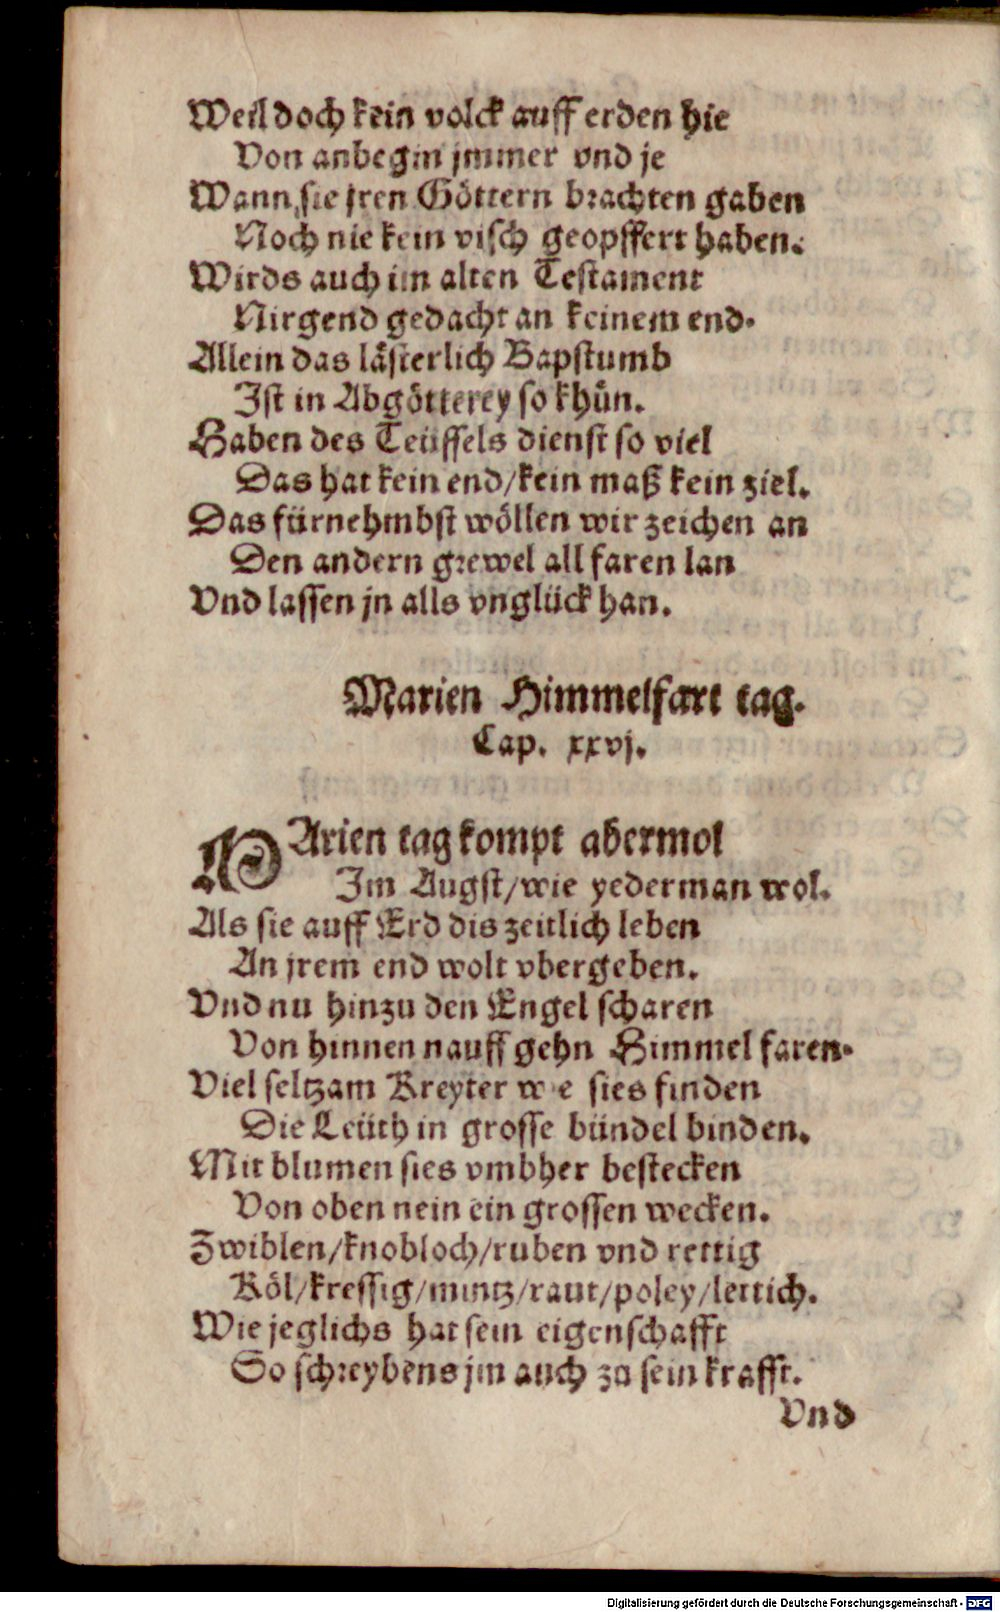 Weil doch kein volck auff erden hie
Von anbegin jmmer vnd je
Wann sie jren Göttern brachten gaben
Noch nie kein visch geopffert haben.
Wirds auch im alten Testament
Nirgend gedacht an keinem end.
Allein das lästerlich Bapstumb
Ist in Abgötterey so khün.
Haben des Teüffels dienst so viel
Das hat kein end/kein maß kein ziel.
Das fürnehmbst wöllen wir zeichen an
Den andern grewel all faren lan
Vnd lassen jn alls vnglück han.
Marien Himmelfart tag.
Cap. xxvj.
MArien tag kompt abermol
Im Augst/wie yederman wol.
Als sie auff Erd dis zeitlich leben
An jrem end wolt vbergeben.
Vnd nu hinzu den Engel scharen
Von hinnen nauff gehn Himmel faren.
Viel seltzam Kreyter w e sies finden
Die Leüth in grosse bündel binden.
Mit blumen sies vmbher bestecken
Von oben nein ein grossen wecken.
Zwiblen/knobloch/ruben vnd rettig
Köl/kressig/mintz/raut/poley/lettich.
Wie jeglichs hat sein eigenschafft
So schreybens jm auch zu sein krafft.
Vnd
Digitalisierung gefördert durch die Deutsche Forschungsgemeinschaft - DFG